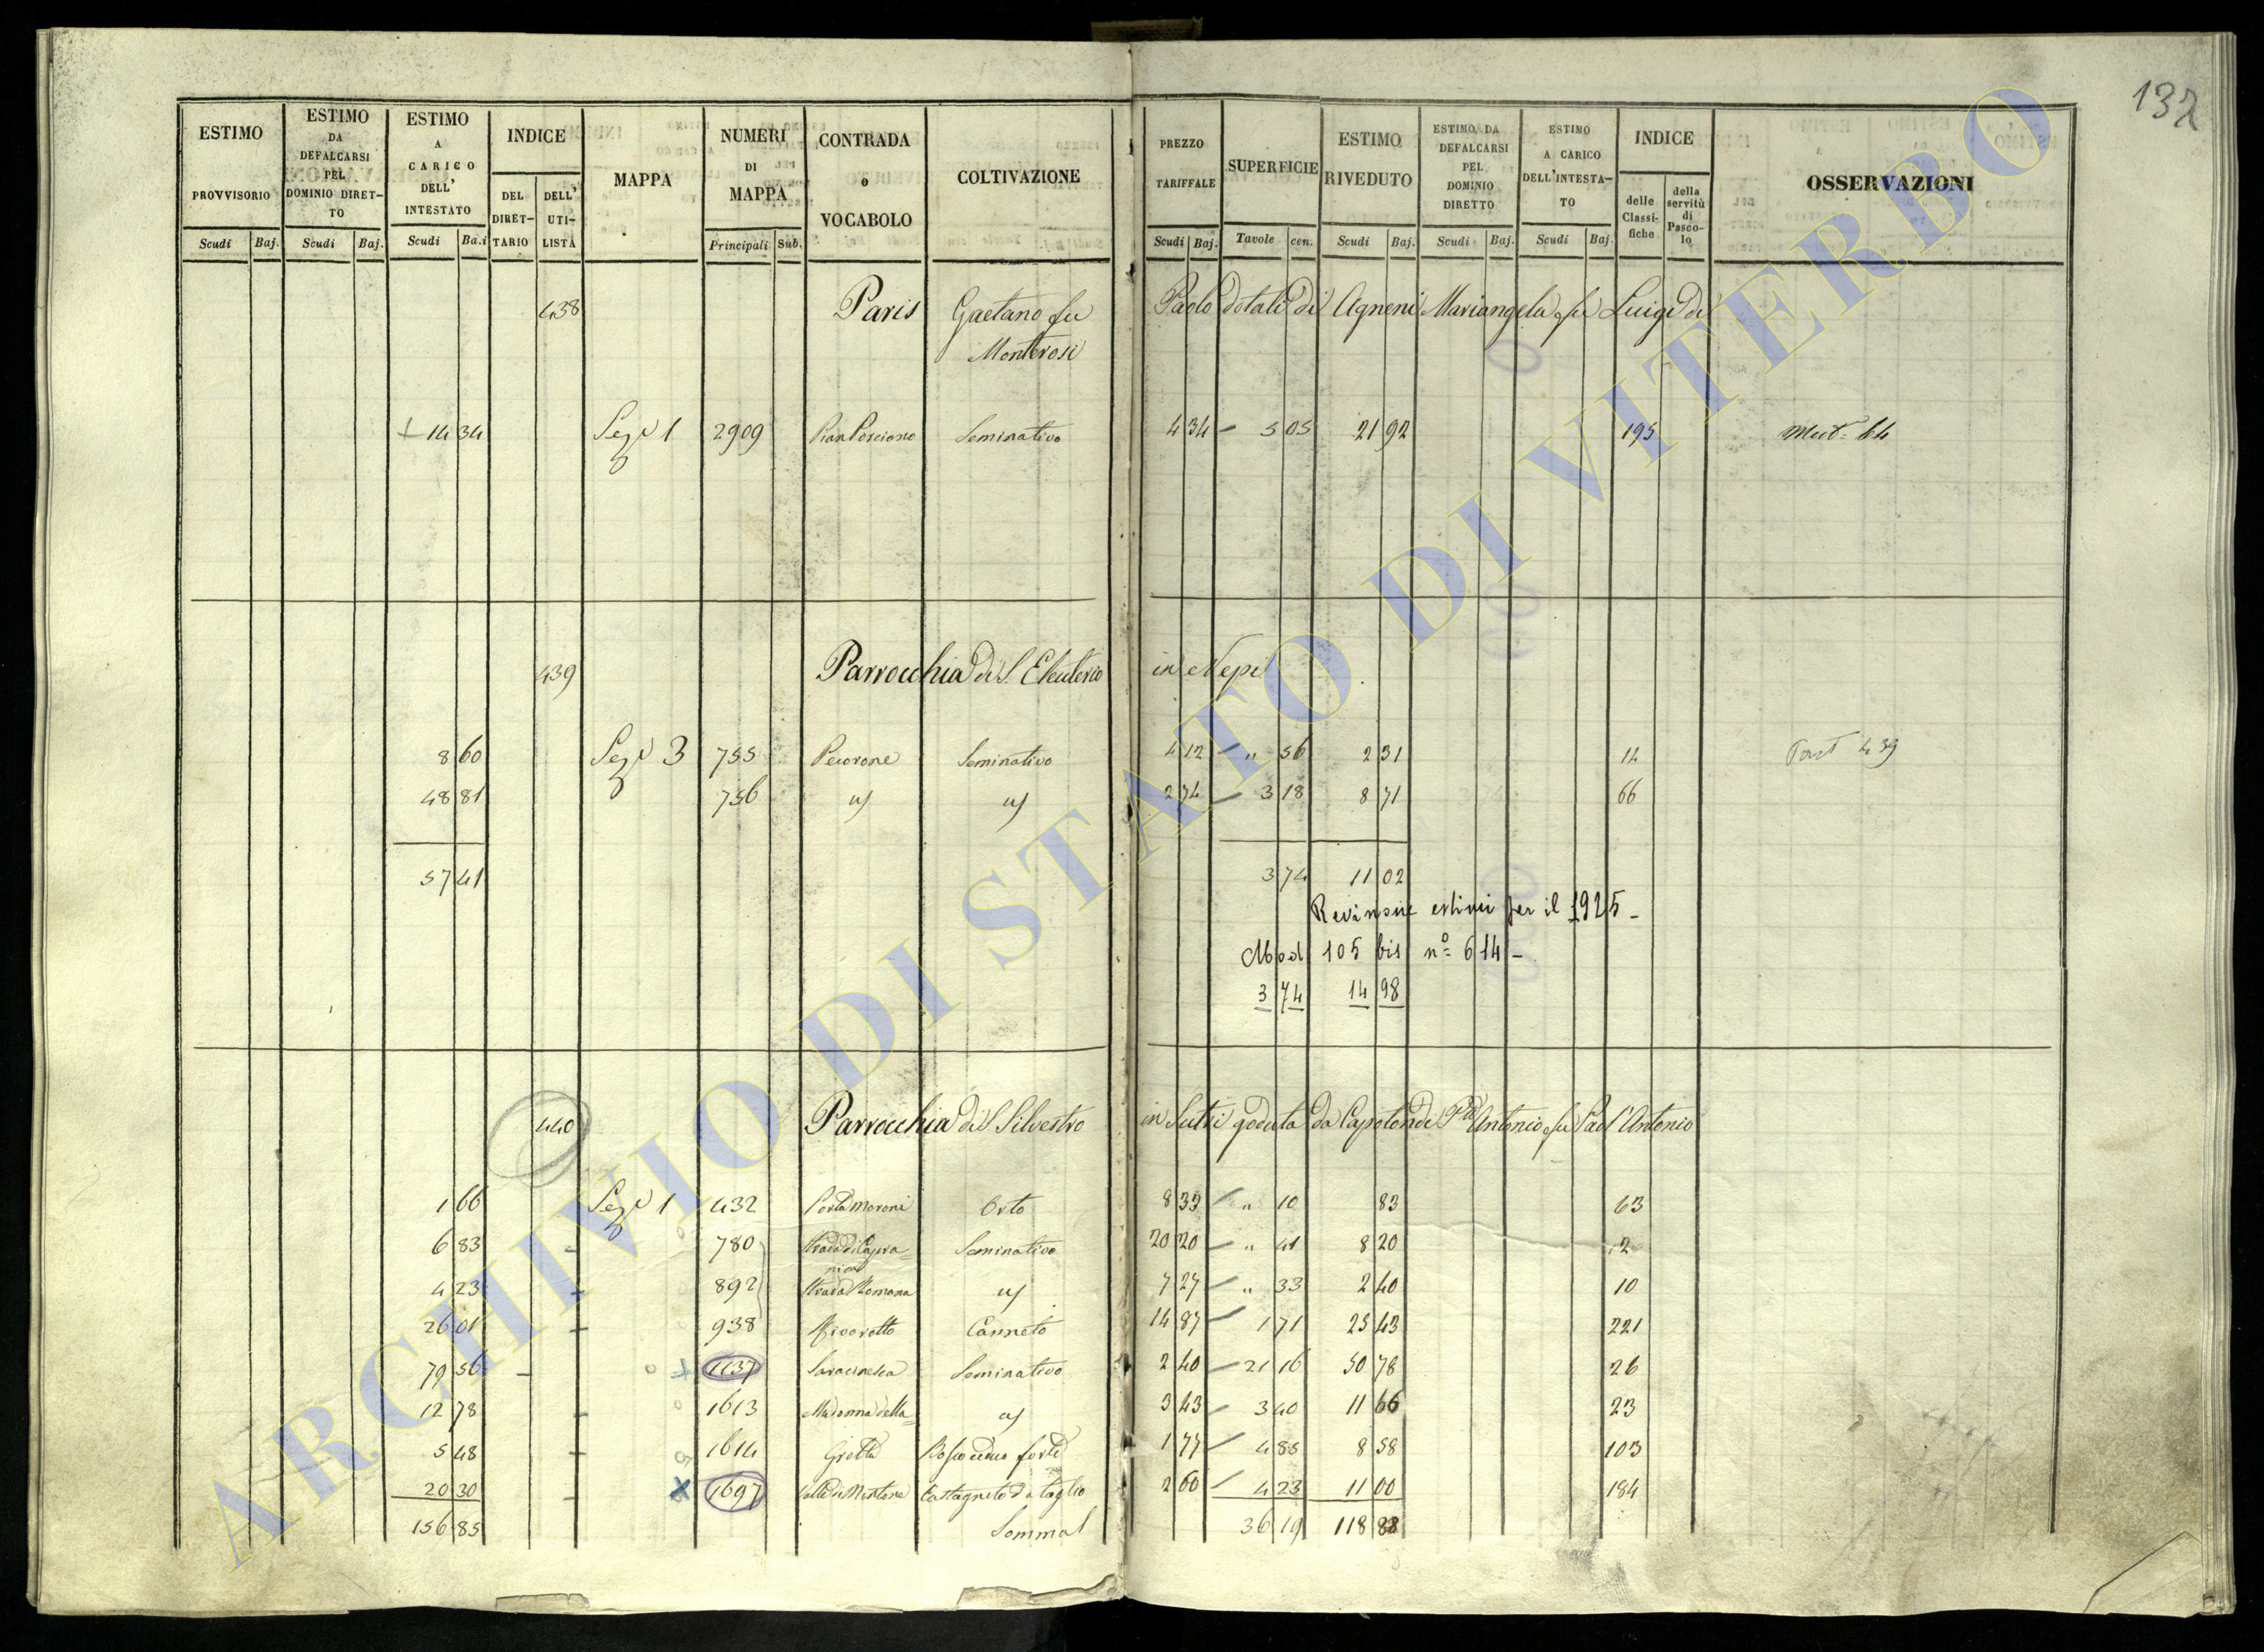 132
ESTIMO PROVVISORIO
ESTIMO DA DEFALCARSI PEL DOMINIO DIRET-TO
ESTIMO A CARICO DELL' INTESTATO
INDICE
DEL DIRET-TARIO
DELL' UTI-LISTA
MAPPA
NUMERI DI MAPPA
CONTRADA o VOCABOLO
COLTIVAZIONE
PREZZO TARIFFALE
SUPERFICIE
ESTIMO RIVEDUTO
ESTIMO DA DEFALCARSI PEL DOMINIO DIRETTO
ESTIMO A CARICO DELL'INTESTA-TO
INDICE
delle Classi-fiche
della servitù di Pasco-lo
OSSERVAZIONI
Scudi Baj. Scudi Baj. Scudi Ba.i Principali Sub. Scudi Baj. Tavole cen. Scudi Baj. Scudi Baj. Scudi Baj.
438 Paris Gaetano fu Paolo dotali di Agneni Mariangela fu Luigi di
Monterosi
14 34 Sez. 1 2909 Pian Porciano Seminativo 4 34 5 05 21 92 195 64
439 Parrocchia di S. Eleuterio in Nepi
8 60 Sez. 3 755 Pecorone Seminativo 4 12 " 56 2 31 14 Part 439
48 81 756 2 74 3 18 8 71 66
57 41 3 74 11 02
estimi per il 1925
Mod 105 bis nº 614
3 74 14 98
440 Parrocchia di S. Silvestro in Sutri goduta da Capotondi Antonio fu Paol'Antonio
1 66 Sez. 1 432 Porta Moroni Orto 8 33 " 10 83 63
6 83 780 Strada di Capra=nica Seminativo 20 20 " 41 8 20 2
4 23 892 Strada Romana 7 27 " 33 2 40 10
26 01 938 Canneto 14 87 1 71 25 43 221
79 56 1137 Saracinesca Seminativo 2 40 21 16 50 78 26
12 78 1613 Madonna della= 3 43 3 40 11 66 23
5 48 1614 Grotta Bosco ceduo forte 1 77 4 85 8 58 103
20 30 1697 Castagneto da taglio 2 60 4 23 11 00 184
156 85 Somma 36 19 118 88
ARCHIVIO DI STATO DI VITERBO